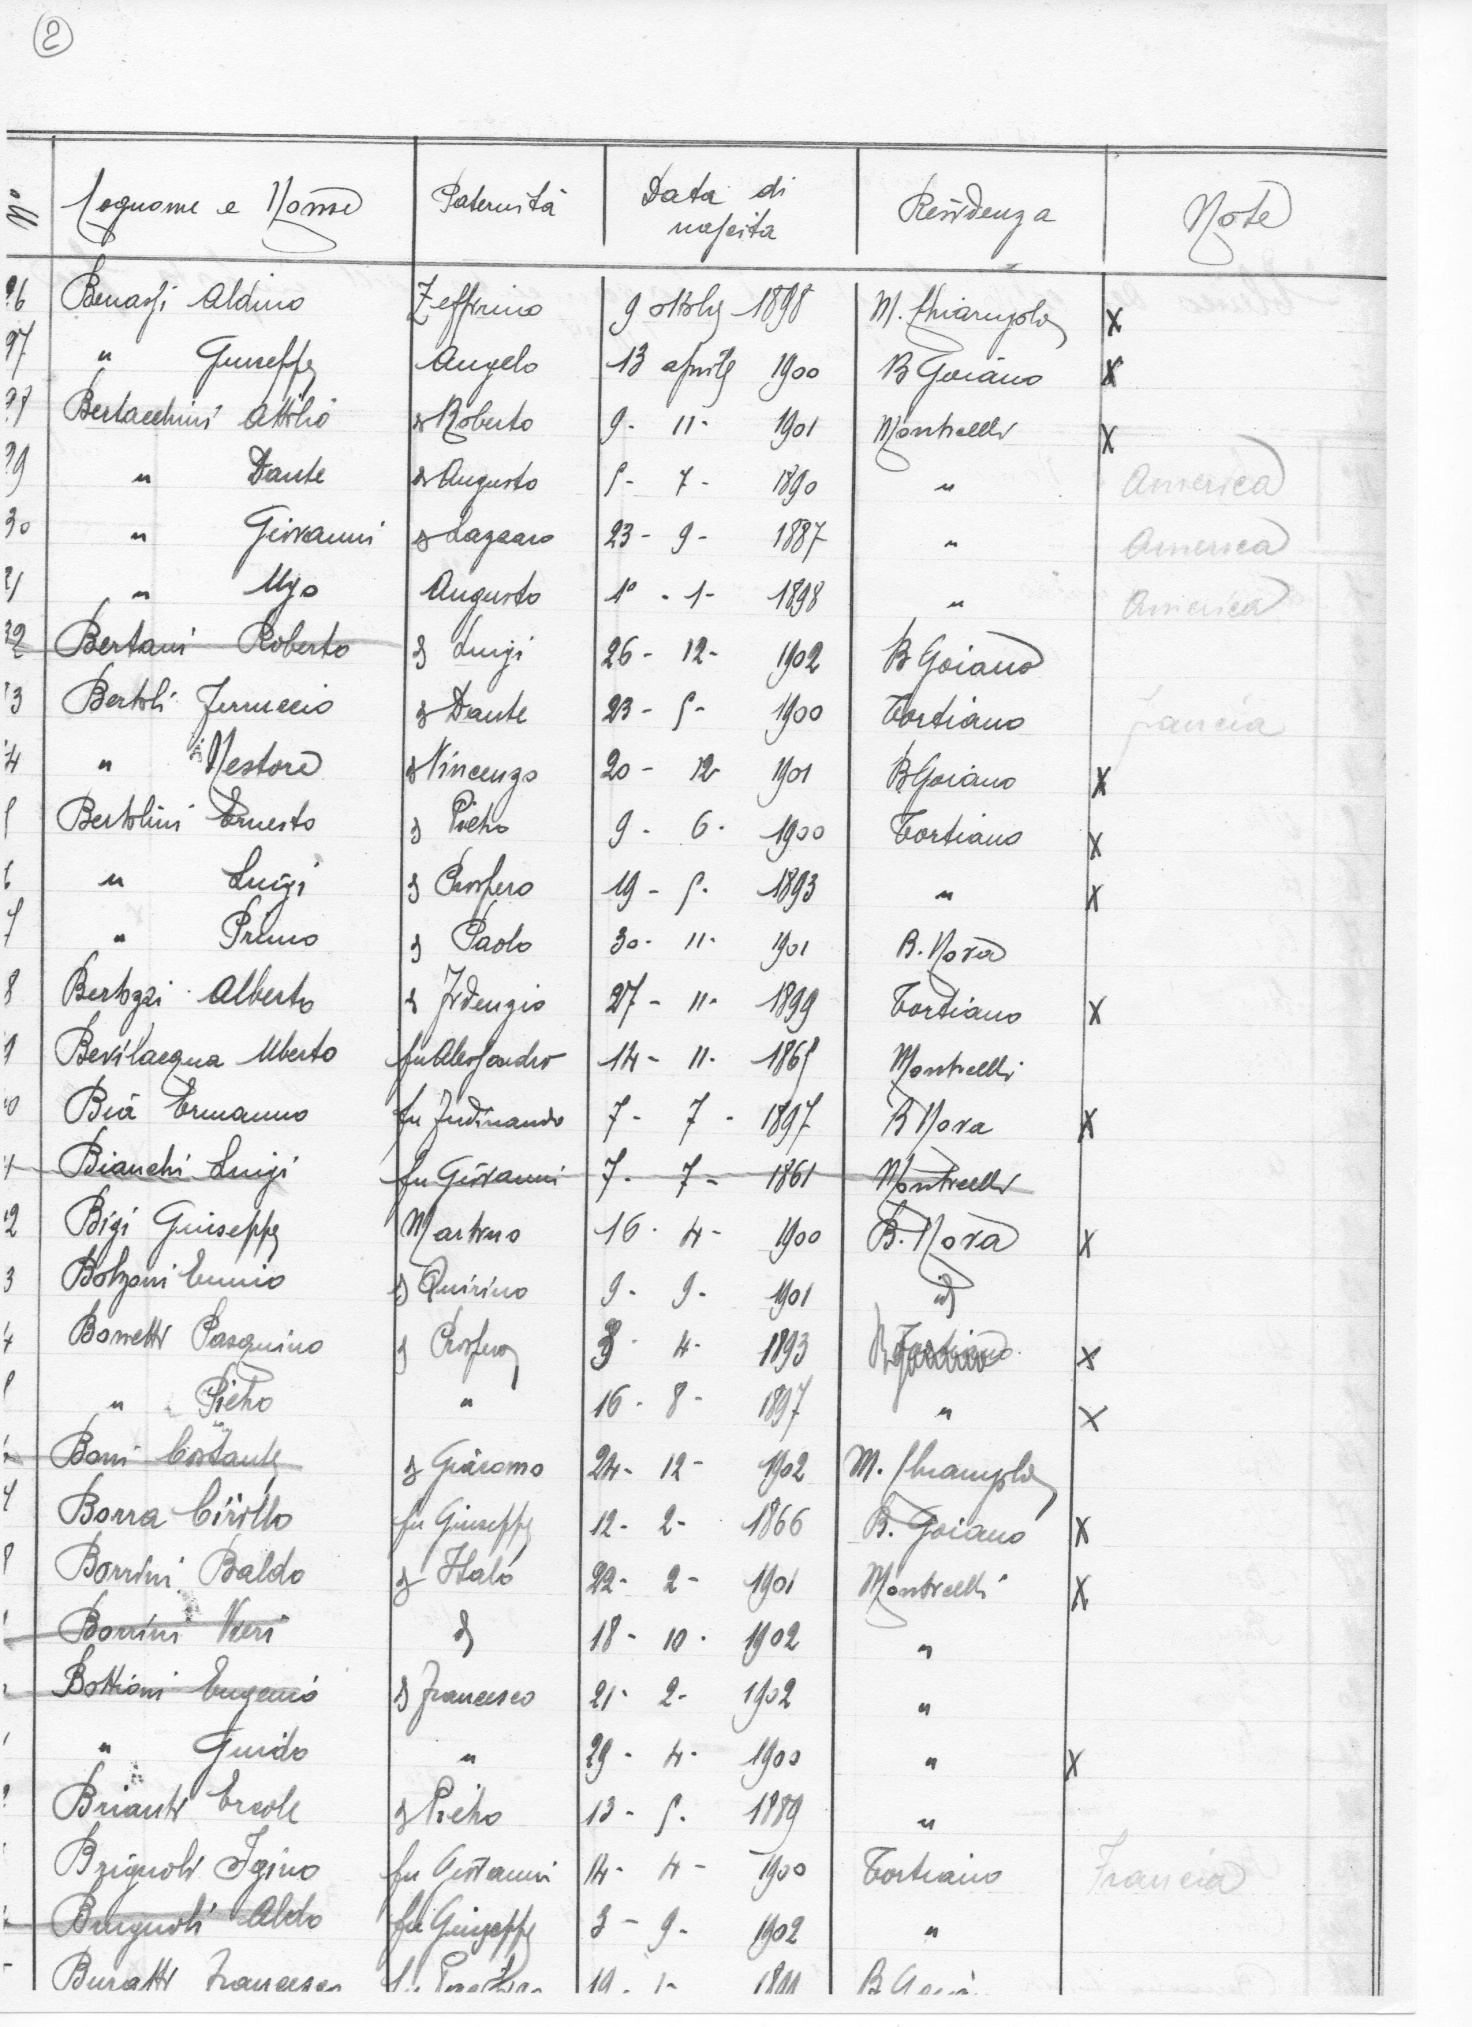 2
N° Cognome e Nome Paternità Data di nascita Residenza Note
26 Benassi Aldino Zeffirino 9 ottobre 1898 M. Chiarugolo X
27 " Giuseppe Angelo 13 aprile 1900 B Goiano X
28 Bertacchini Attilio di Roberto 9 - 11 - 1901 Monticelli X
29 " Dante di Augusto 5 - 7 - 1890 " America
30 " Giovanni di Lazzaro 23 - 9 - 1887 " America
31 " Ugo Augusto 1° - 1 - 1898 " America
32 Bertani Roberto di Luigi 26 - 12 - 1902 B Goiano
33 Bertoli Ferruccio di Dante 23 - 5 - 1900 Tortiano Francia
4 " Nestore di Vincenzo 20 - 12 1901 B Goiano X
5 Bertolini Ernesto di Pietro 9 - 6 - 1900 Tortiano X
6 " Luigi di Prospero 19 - 5 - 1893 " X
7 " Primo di Paolo 30 - 11 - 1901 B. Nova
8 Bertozzi Alberto di 27 - 11 - 1899 Tortiano X
9 Bevilacqua Uberto fu Alessandro 14 - 11 - 1865 Monticelli
40 Bià Ermanno fu Ferdinando 7 - 7 - 1897 B Nova X
41 Bianchi Luigi fu Giovanni 7 - 7 - 1861 Monticelli
42 Bigi Giuseppe Martino 16 - 4 - 1900 B. Nova X
3 Bolzoni Ennio di Quirino 9 - 9 - 1901 id
4 Bonetti Pasquino di Prospero 3 - 4 - 1893 Tortiano X
5 " Pietro " 16 - 8 - 1897 " X
Boni Costante di Giacomo 24 - 12 - 1902 M. Chiarugolo
7 Borra Cirillo fu Giuseppe 12 - 2 - 1866 B. Goiano X
8 Borrini Baldo di Italo 22 - 2 - 1901 Monticelli X
Borrini Neri di 18 - 10 - 1902 "
Bottioni Eugenio di Francesco 21 - 2 - 1902 "
" Guido " 29 - 4 - 1900 " X
Brianti Ercole di Pietro 13 - 5 - 1889 "
Brignoli Igino fu Giovanni 14 - 4 - 1900 Tortiano Francia
Brugnoli Aldo fu Giuseppe 3 - 9 - 1902 "
Buratti Francesco